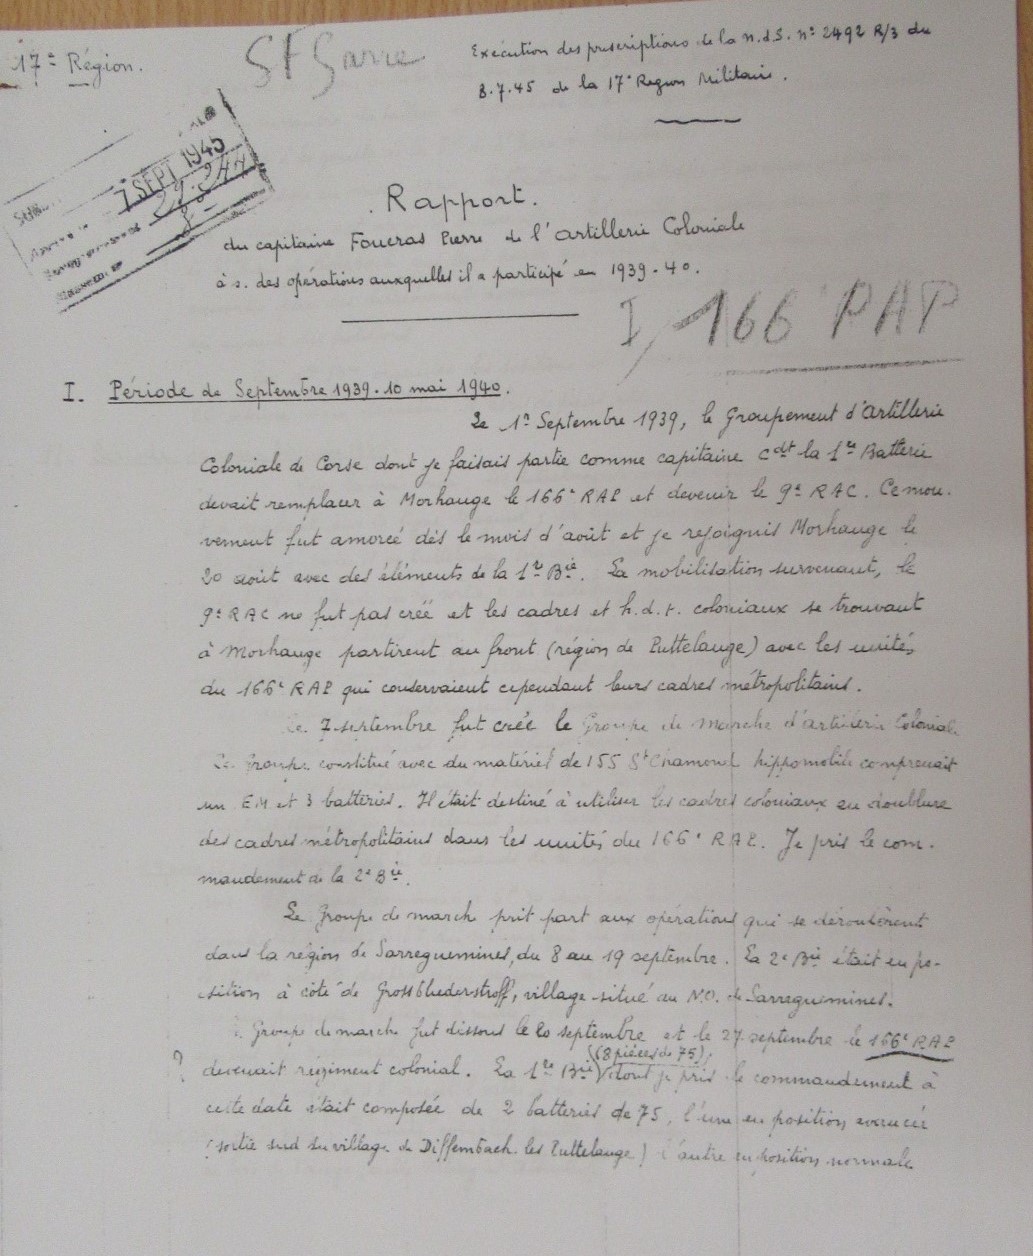 17e Région.
SF Sarre
Exécution des prescriptions de la N.d.S. n° 2492 R/3 du
8.7.45 de la 17e Région Militaire.
7 SEPT 1945
Rapport.
du capitaine Foucras Pierre de l'artillerie Coloniale
à s. des opérations auxquelles il a participé en 1939-40.
I/166 PAP
I. Période de Septembre 1939-10 mai 1940.
Le 1er Septembre 1939, le Groupement d'artillerie
Coloniale de Corse dont je faisais partie comme capitaine Cdt la 1re Batterie
devait remplacer à Morhange le 166e RAP et devenir le 9e RAC. Ce mou-
vement fut amorcé dès le mois d'août et je rejoignis Morhange le
20 août avec des éléments de la 1re Bie. La mobilisation survenant, le
9e RAC ne fut pas créé et les cadres et h.d.t. coloniaux se trouvant
à Morhange partirent au front (région de Puttelange) avec les unités
du 166e RAP qui conservaient cependant leurs cadres métropolitains.
Le 7 septembre fut créé le Groupe de marche d'artillerie Coloniale
Ce Groupe constitué avec du matériel de 155 St Chamond hippomobile comprenait
un EM et 3 batteries. Il était destiné à utiliser les cadres coloniaux en doublure
des cadres métropolitains dans les unités du 166e RAP. Je pris le com-
mandement de la 2e Bie.
Le Groupe de march prit part aux opérations qui se déroulèrent
dans la région de Sarreguemines, du 8 au 19 septembre. La 2e Bie était en po-
sition à côté de Grossbliederstroff, village situé au N.O. de Sarreguemines.
Le Groupe de marche fut dissous le 20 septembre et le 27 septembre le 166e RAP
? devenait régiment colonial. La 1re Bie (8 pièces de 75) dont je pris le commandement à
cette date était composée de 2 batteries de 75, l'une en position avancée
(sortie sud du village de Diffembach les Puttelange) l'autre en position normale